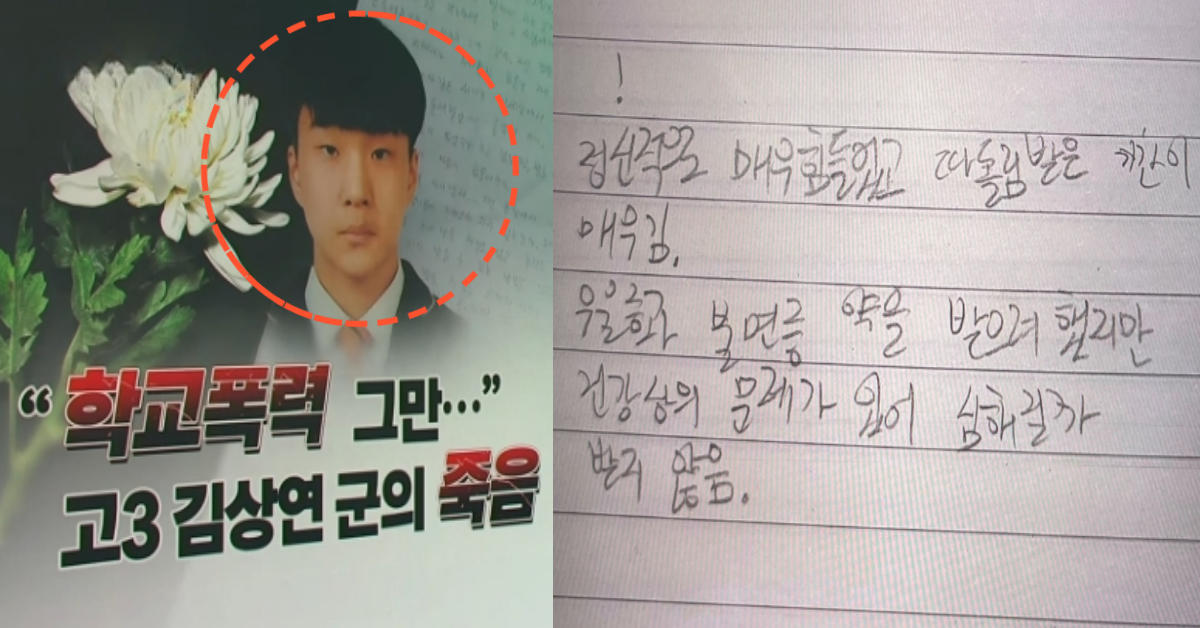 “학교폭력 그만…”
고3 김상연 군의 죽음
!
정신적으로 매우힘들었고 따돌림받은 기간이
매우김.
우울증과 불면증 약을 받으려 했지만
건강상의 문제가 있어 심해질까
받지 않음.